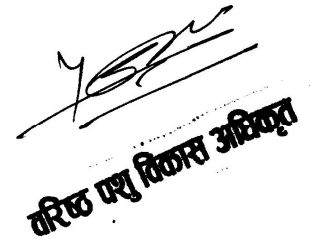 वरिष्ठ पशु विकास अधिकृत